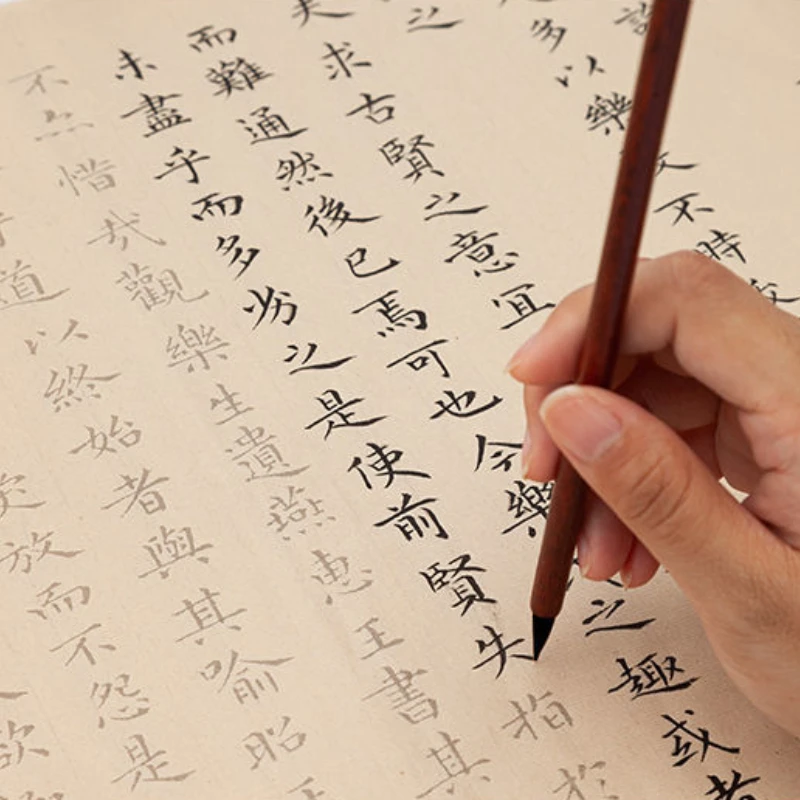 多以樂不時
之
夫求古賢之意宜
而難通然後已焉可也今樂之趣或者
未盡乎而多劣之是使前賢失指於
不亦惜哉觀樂生遺燕惠王書其
乎道以終始者與其喻昭王
放而不怨是
欲